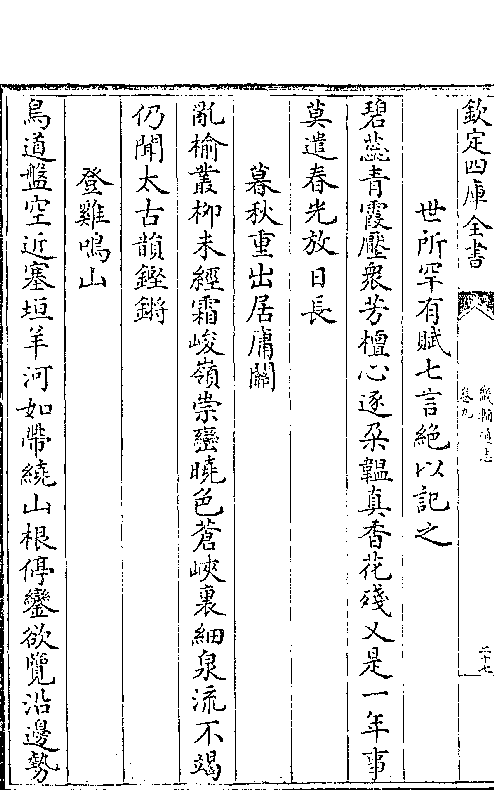 欽定四庫全書
畿輔通志
卷九
二十七
世所罕有賦七言絶以記之
碧蕊青霞壓衆芳檀心逐朶韞真香花殘又是一年事
莫遣春光放日長
暮秋重出居庸關
亂榆叢柳未經霜峻嶺崇巒曉色蒼峽裏細泉流不竭
仍聞太古韻鏗鏘
登雞鳴山
鳥道盤空近塞垣羊河如帶繞山根停鑾欲覽沿邊勢